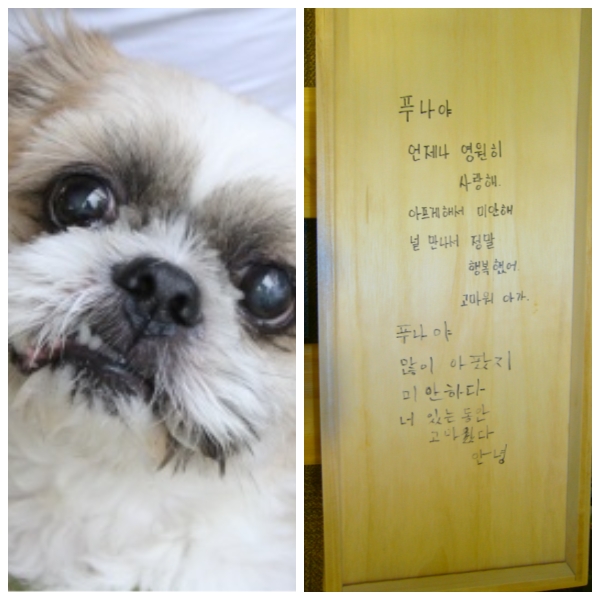 푸나야
언제나 영원히
사랑해.
아프게해서 미안해
널 만나서 정말
행복했어.
고마워 아가.
푸나야
많이 아팠지
미안하다
너 있는동안
고마웠다
안녕